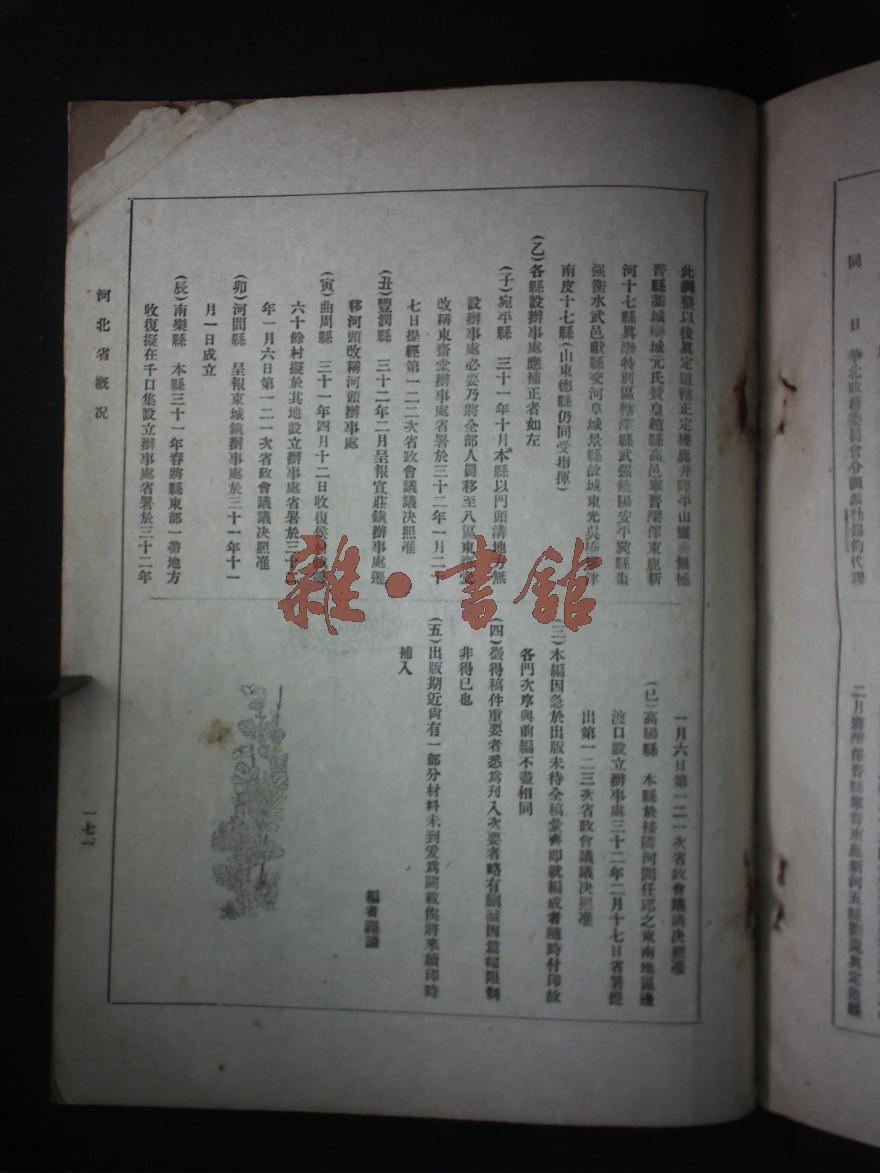 此調整以後眞定道轄正定獲鹿井陘平山靈壽無極
晋縣藁城欒城元氏贊皇趙縣高邑寧晋深澤束鹿新
河十七縣眞渤特別區轄深縣武强饒陽安平冀縣棗
强衡水武邑獻縣交河阜城景縣故城東光吳橋寧津
南皮十七縣(山東德縣仍同受指揮)
(乙)各縣設辦事處應補正者如左
(子)宛平縣 三十一年十月本縣以門頭溝地方無
設辦事處必要乃將全部人員移至八區東齋堂
改稱東齋堂辦事處省署於三十二年一月二十
七日提經第一二二次省政會議議决照准
(丑)豐潤縣 三十二年二月呈報宣莊鎭辦事處遷
移河頭改稱河頭辦事處
(寅)曲周縣 三十一年四月十二日收復侯村
六十餘村擬於其地設立辦事處省署於三十二
年一月六日第一二一次省政會議議决照准
(卯)河間縣 呈報東城鎭辦事處於三十一年十一
月一日成立
(辰)南樂縣 本縣三十一年春將縣東部一帶地方
收復擬在千口集設立辦事處省署於三十二年
一月六日第一二一次省政會議議决照准
(巳)高陽縣 本縣於接隣河間任邱之東南地區邊
渡口設立辦事處三十二年二月十七日省署提
出第一二三次省政會議議决照准
(三)本編因急於出版未待全稿彙齊即就編成者隨時付印故
各門次序與前編不盡相同
(四)徵得稿件重要者悉爲刊入次要者略有刪減因篇幅限制
非得已也
(五)出版期近尙有一部分材料未到爰爲闕載俟將來續印時
補入
編者謹識
河北省概况
一七一
雜·書館
同日 華北政務委員會令調派杜錫鈞代理